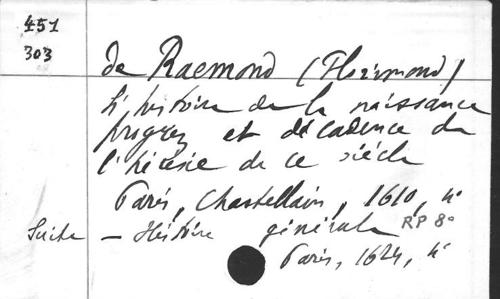 451
303
de Raemond (Florimond)
L'histoire de la naissance
progrez et décadence de
l'hérésie de ce siècle
Paris, Chastellain, 1610, 4°
RP 8°
Suite — Histoire générale
Paris, 1624, 4°